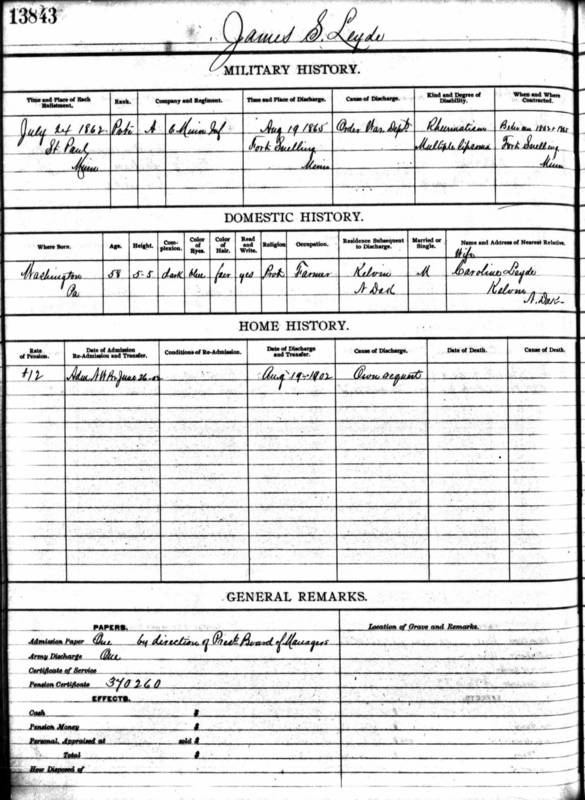 13843
James S. Leyde
MILITARY HISTORY.
Time and Place of Each Enlistment. Rank. Company and Regiment. Time and Place of Discharge. Cause of Discharge. Kind and Degree of Disability. When and Where Contracted.
July 24 1862 Priv A 6 Minn Inf Aug 19 1865 Order War Dept Rheumatism Between 1862 & 1865
St Paul Fort Snelling Multiple lipoma Fort Snelling
Minn Minn Minn
DOMESTIC HISTORY.
Where Born. Age. Height. Complexion. Color of Eyes. Color of Hair. Read and Write. Religion Occupation. Residence Subsequent to Discharge. Married or Single. Name and Address of Nearest Relative.
Wife
Washington 58 5-5 dark blue fair yes Prot Farmer Kelvin M Caroline Leyde
Pa N Dak Kelvin
N. Dak
HOME HISTORY.
Rate of Pension. Date of Admission Re-Admission and Transfer. Conditions of Re-Admission. Date of Discharge and Transfer. Cause of Discharge. Date of Death. Cause of Death.
$12 Adm N W Br June 26-02 Aug 19-1902 Own request
GENERAL REMARKS.
PAPERS. Location of Grave and Remarks.
Admission Paper One by direction of Prest Board of Managers
Army Discharge One
Certificate of Service
Pension Certificate 370260
EFFECTS.
Cash $
Pension Money $
Personal, Appraised at sold $
Total $
How Disposed of